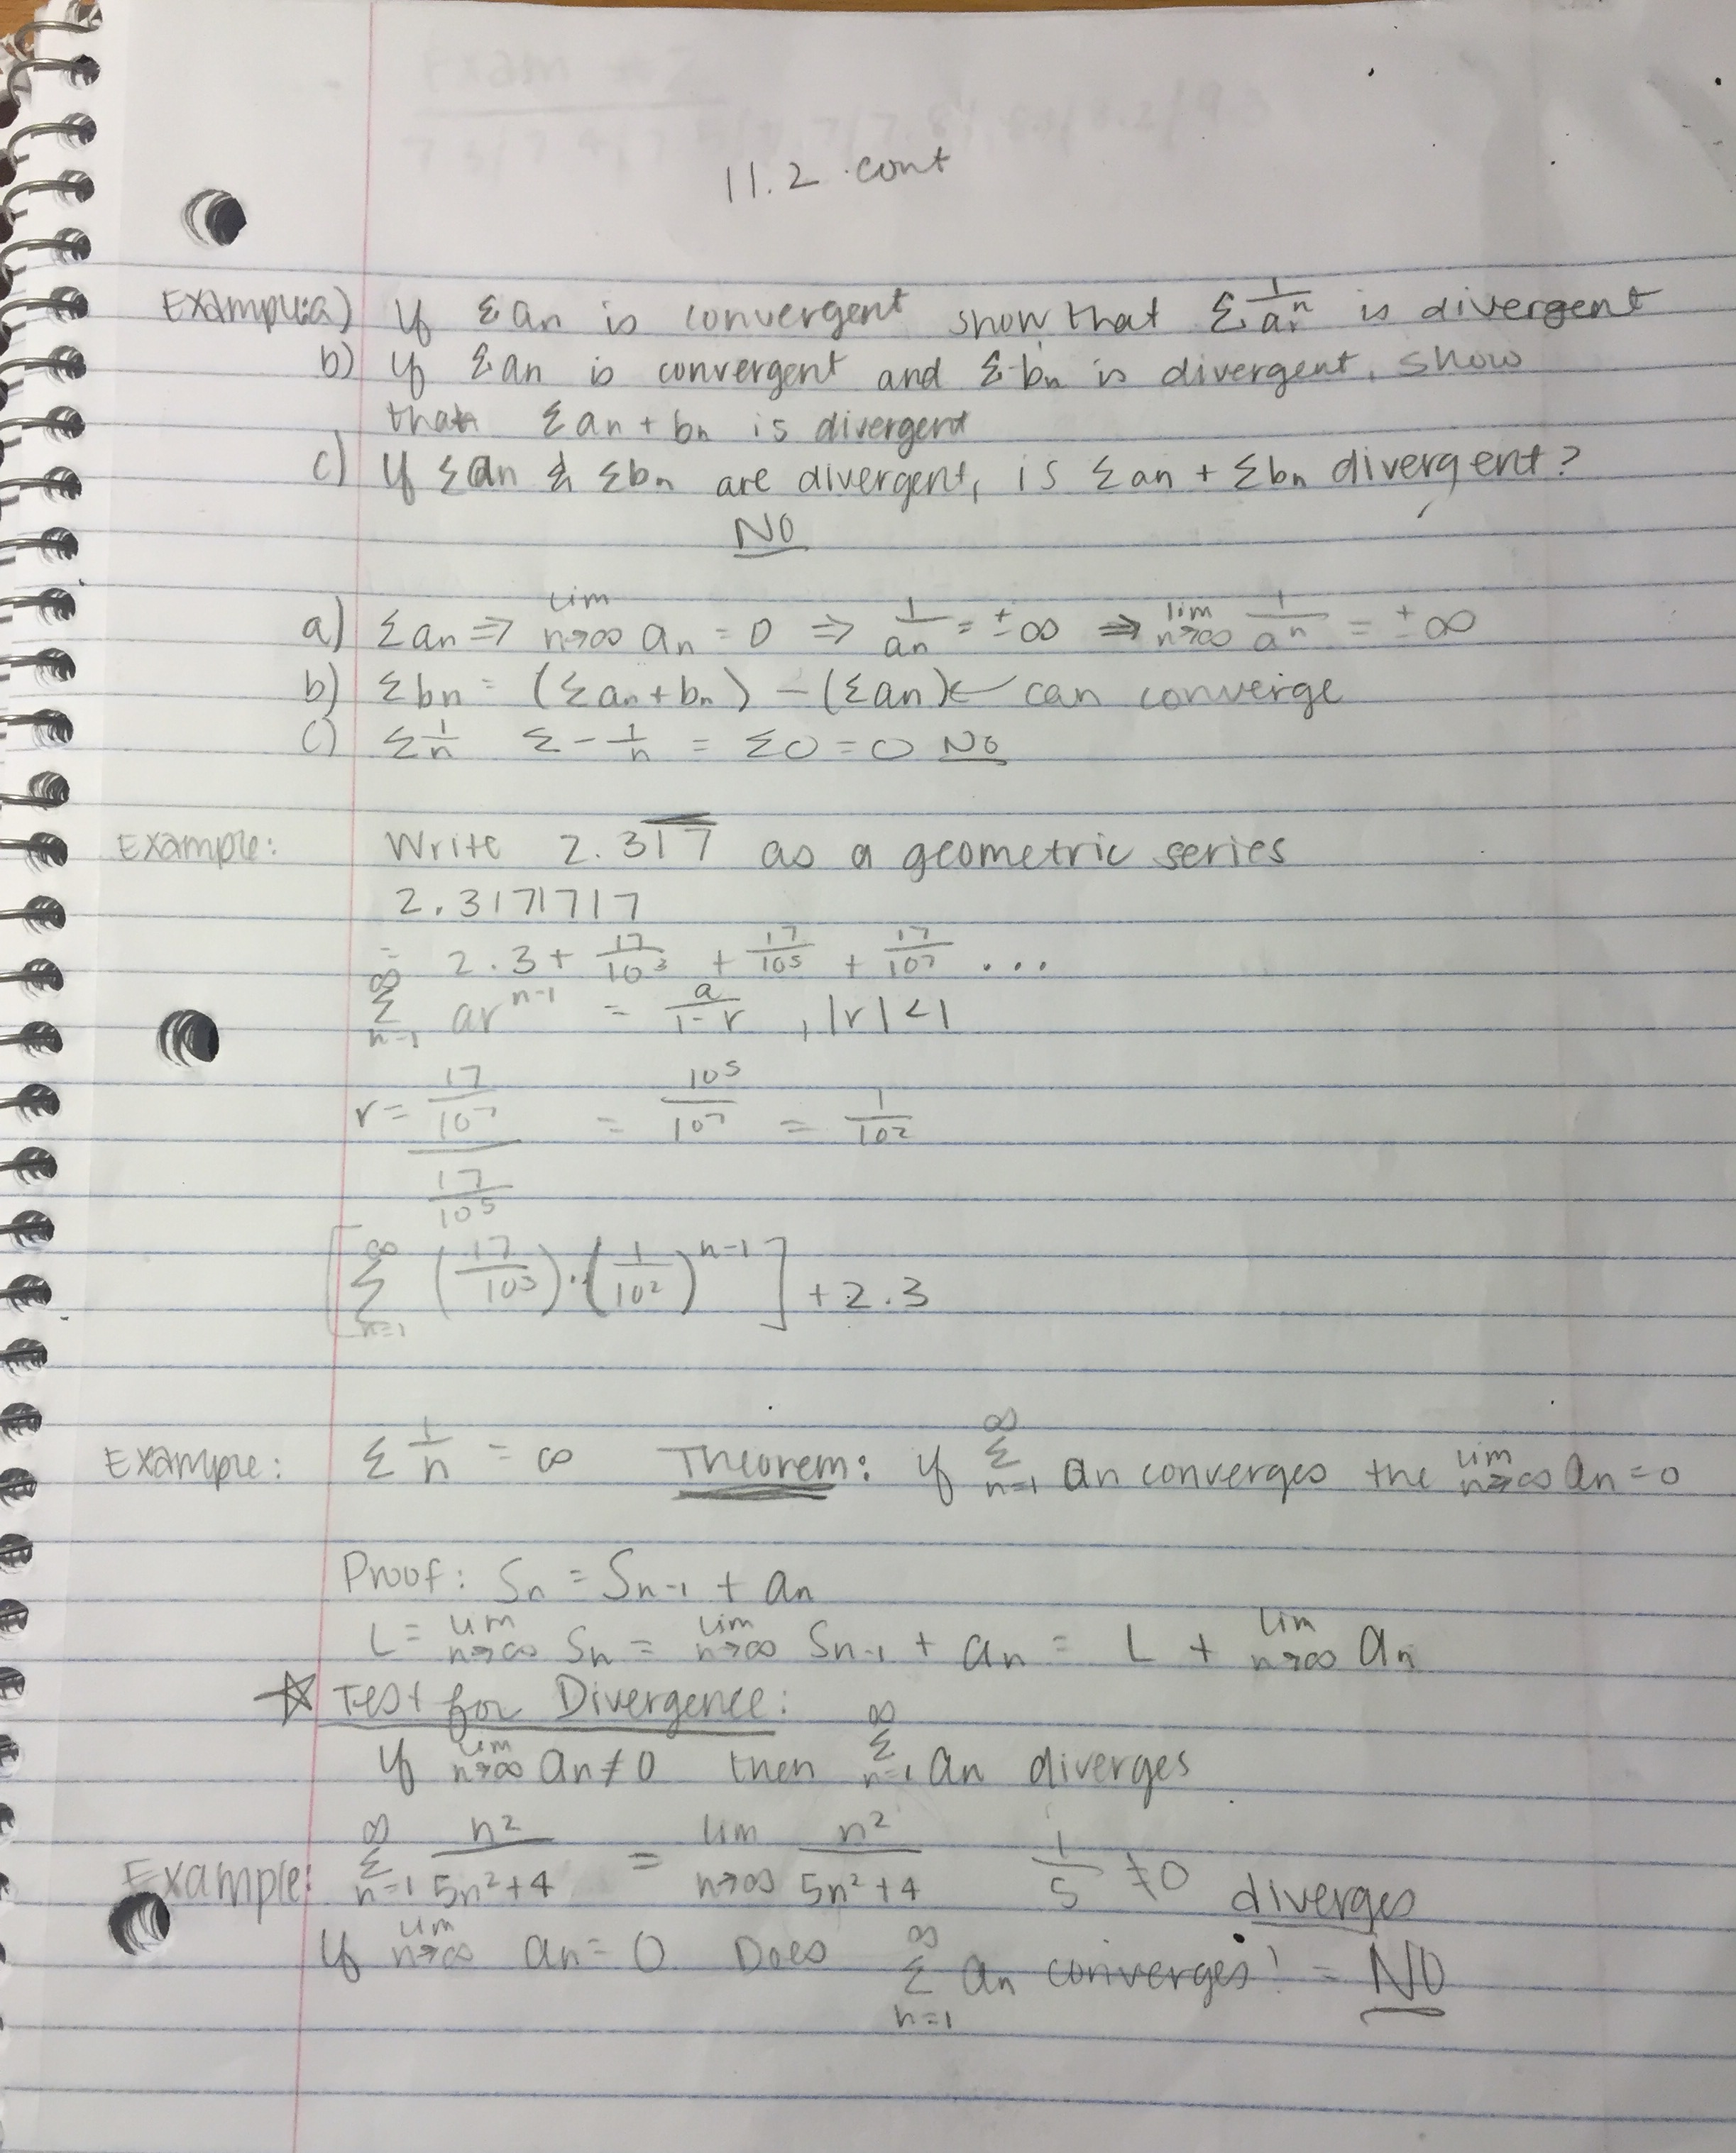 Exam #2
11.2 cont
Example: a) If Σan is convergent show that Σ 1/aⁿ is divergent
b) If Σan is convergent and Σbn is divergent, show
that Σan + bn is divergent
c) If Σan & Σbn are divergent, is Σan + Σbn divergent?
NO
a) Σan ⇒ lim n→∞ an = 0 ⇒ 1/an = ±∞ ⇒ lim n→∞ 1/aⁿ = ±∞
b) Σbn = (Σan + bn) − (Σan) ← can converge
c) Σ 1/n Σ − 1/n = Σ0 = 0 NO
Example: Write 2.31̅7̅ as a geometric series
2.3171717
= 2.3 + 17/10³ + 17/10⁵ + 17/10⁷ ...
∞ Σ n=1 arⁿ⁻¹ = a/(1-r) , |r| < 1
r = (17/10⁷)/(17/10⁵) = 10⁵/10⁷ = 1/10²
[∞ Σ n=1 (17/10³)·(1/10²)ⁿ⁻¹] + 2.3
Example: Σ 1/n = ∞ Theorem: if ∞ Σ n=1 an converges the lim n→∞ an = 0
Proof: Sn = Sn-1 + an
L = lim n→∞ Sn = lim n→∞ Sn-1 + an = L + lim n→∞ an
☆ Test for Divergence:
If lim n→∞ an ≠ 0 then ∞ Σ n=1 an diverges
Example: ∞ Σ n=1 n²/(5n²+4) = lim n→∞ n²/(5n²+4) 1/5 ≠ 0 diverges
If lim n→∞ an = 0 Does ∞ Σ n=1 an converges! = NO